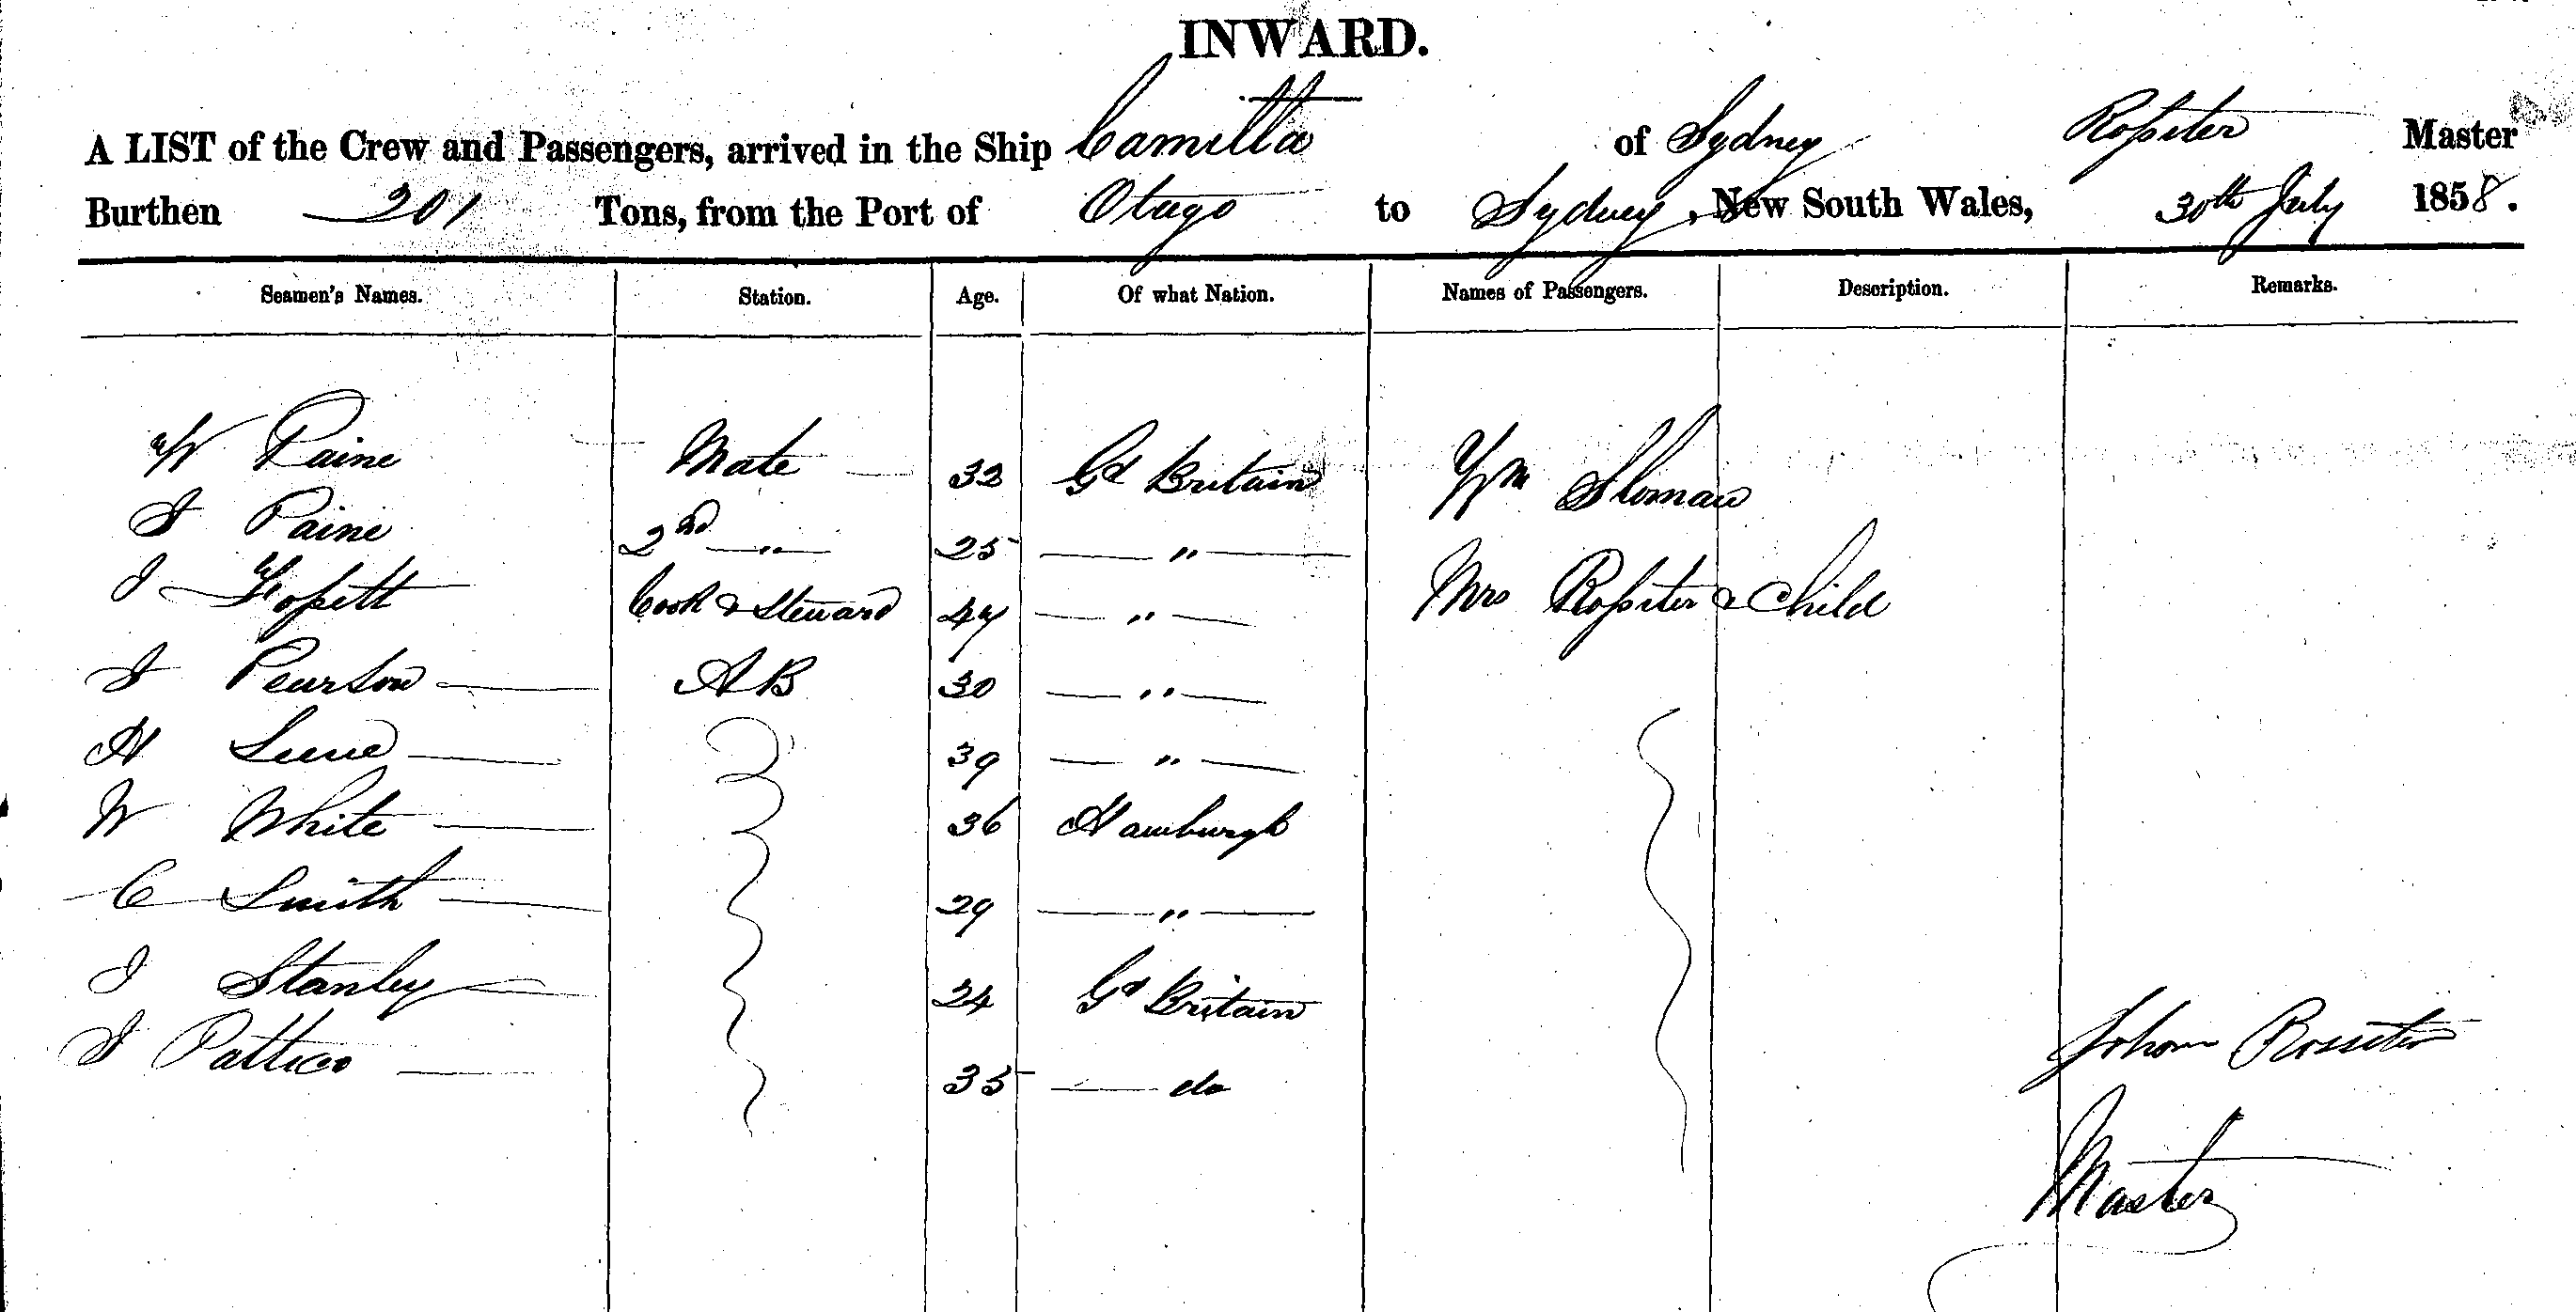 INWARD.
A LIST of the Crew and Passengers, arrived in the Ship Camilla of Sydney Rossiter Master
Burthen 201 Tons, from the Port of Otago to Sydney, New South Wales, 30th July 1858.
Seamen's Names. Station. Age. Of what Nation. Names of Passengers. Description. Remarks.
W Paine Mate 32 Gt Britain Wm Sloman
J Paine 2nd " 25 " Mrs Rossiter & Child
J Cook & Steward 47 "
J Pearson AB 30 "
H 39 "
W White 36 Hamburgh
C Smith 29 "
J Stanley 24 Gt Britain
J 35 do
John Rossiter
Master